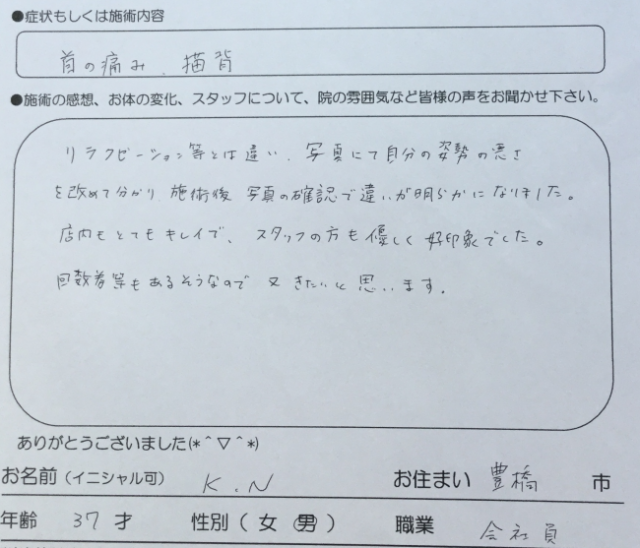 ●症状もしくは施術内容
首の痛み、猫背
●施術の感想、お体の変化、スタッフについて、院の雰囲気など皆様の声をお聞かせ下さい。
リラクゼーション等とは違い、写真にて自分の姿勢の悪さ
を改めて分かり 施術後 写真の確認で違いが明らかになりました。
店内もとてもキレイで、スタッフの方も優しく好印象でした。
回数券等もあるそうなので又きたいと思います。
ありがとうございました(*＾▽＾*)
お名前(イニシャル可) K.N お住まい 豊橋 市
年齢 37 才 性別(女 男) 職業 会社員